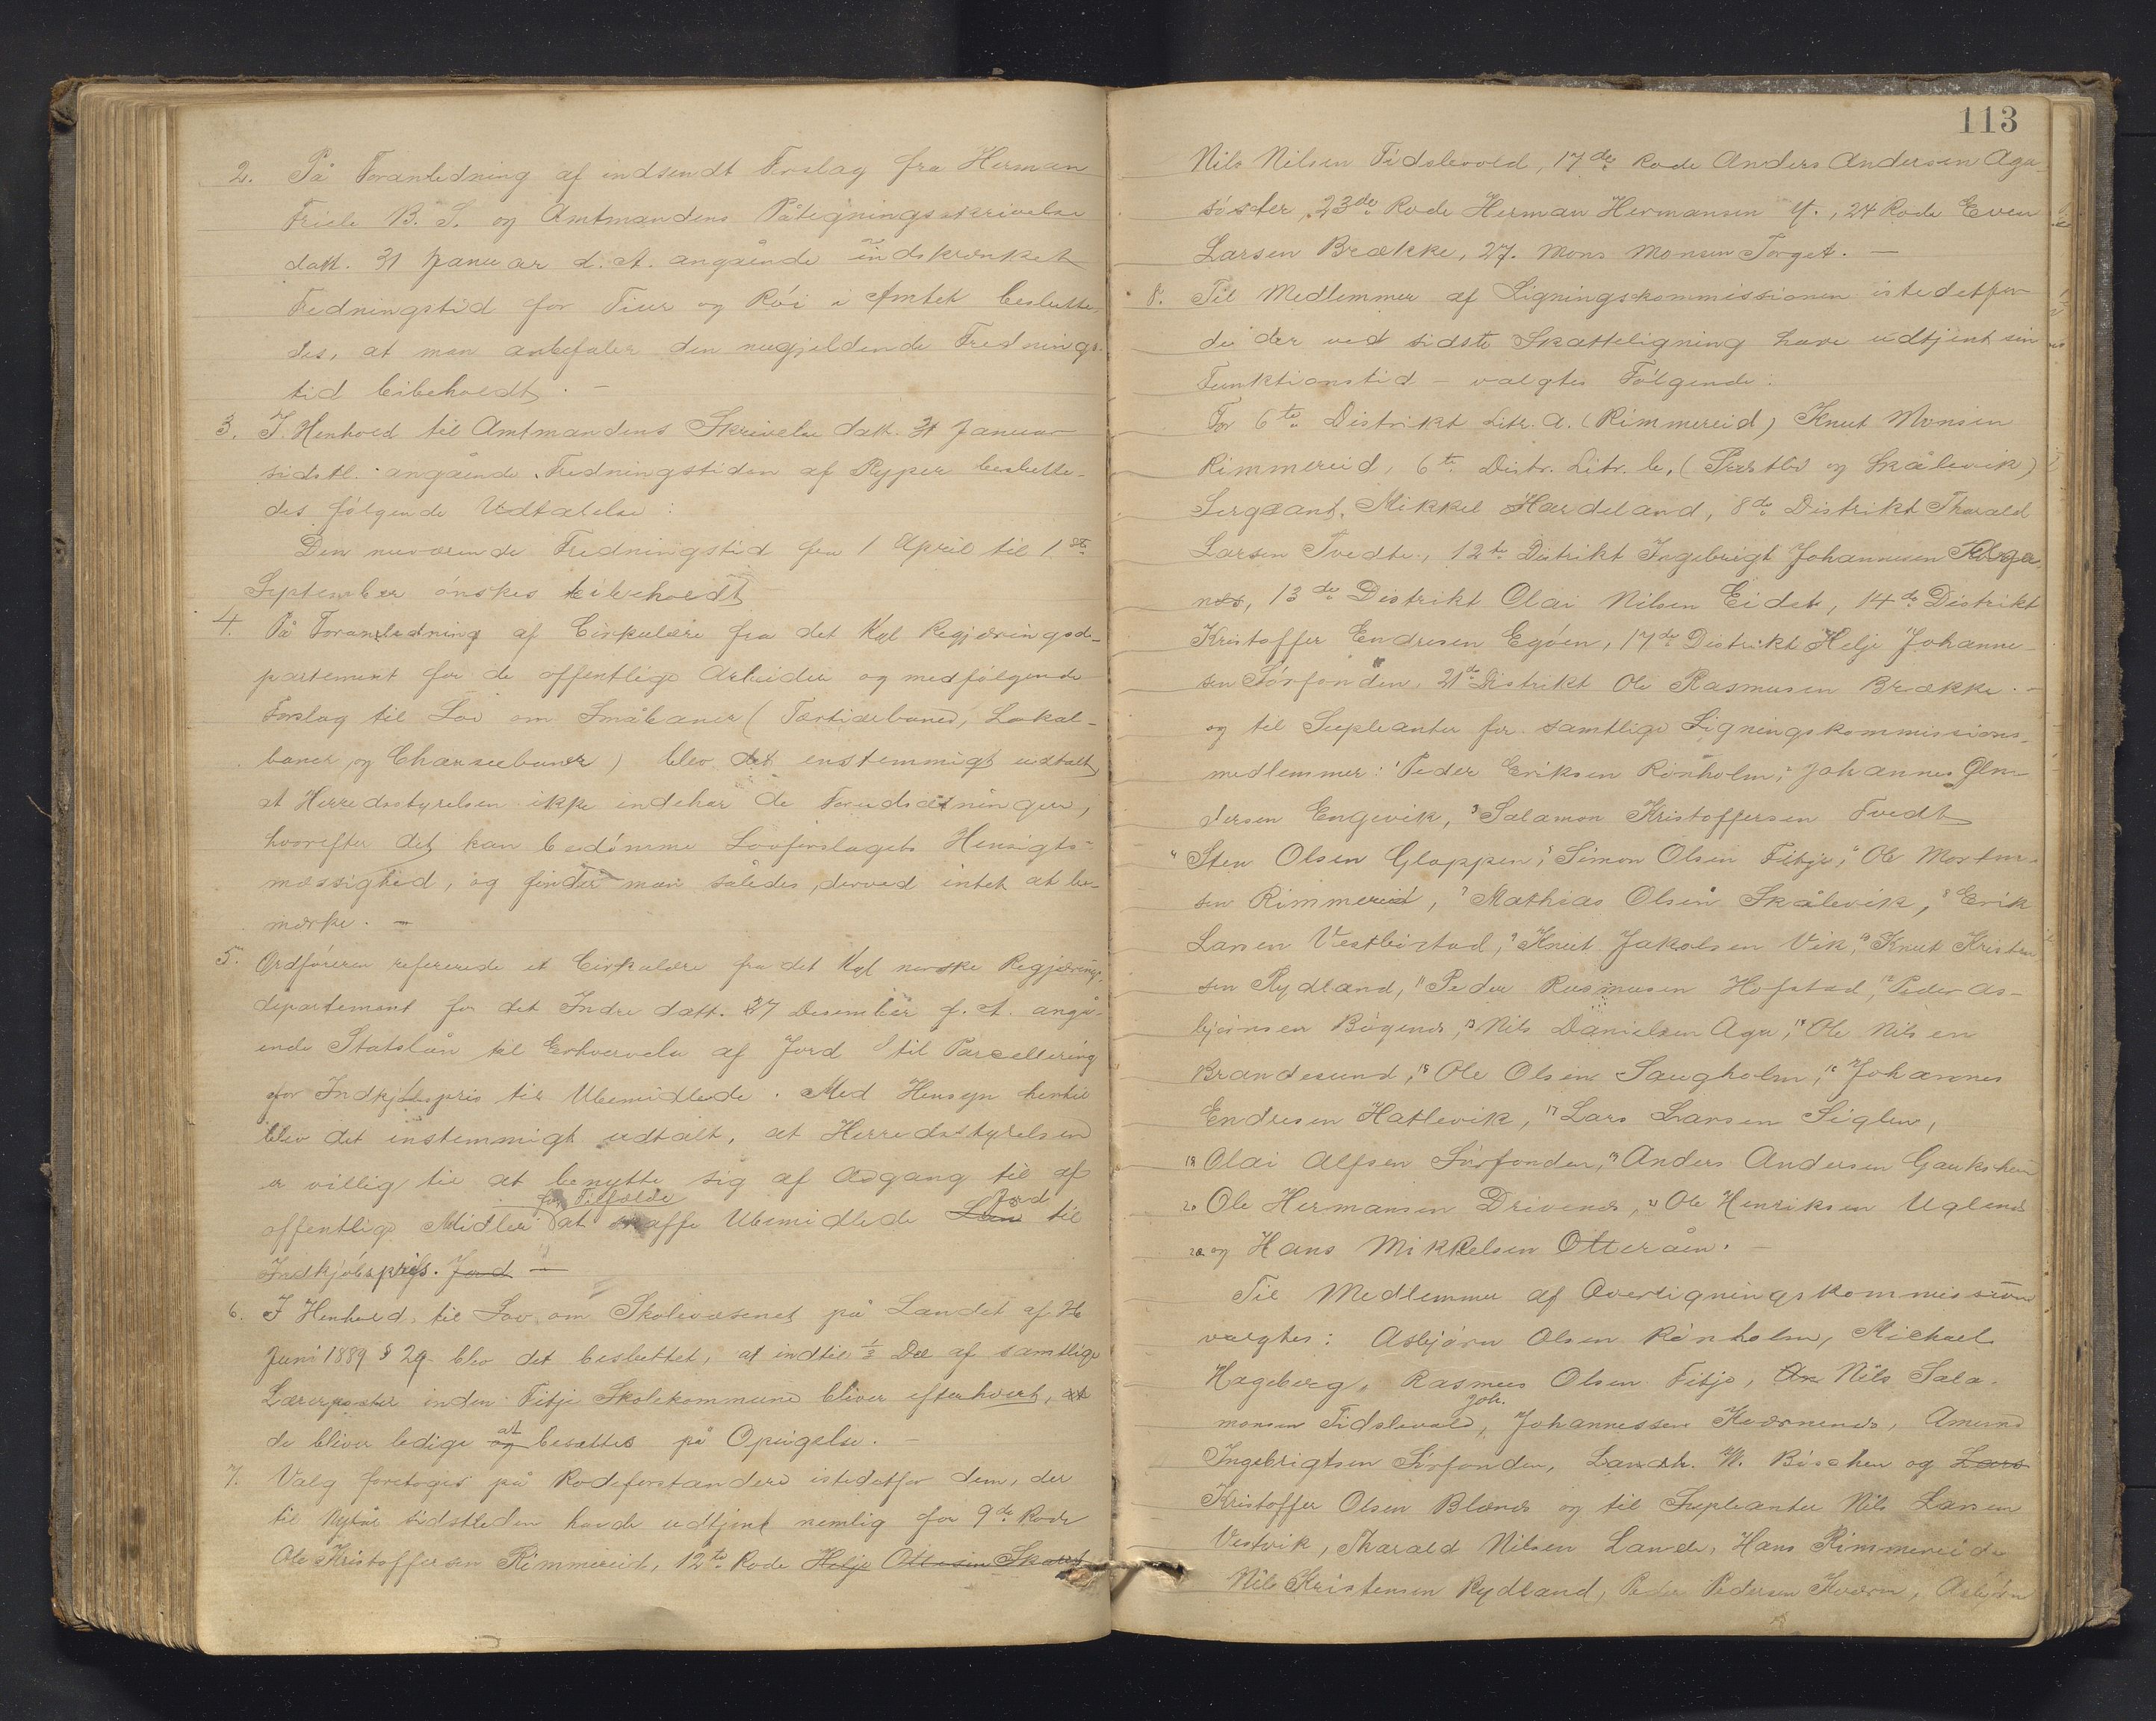 2. På Foranledning af indsendt Forslag fra Herman
Friele B. S. og Amtmandens Påtegningsskrivelse
datt. 31 Januar d. A. angående indskrænket
Fredningstid for Tiur og Röi i Amtet beslutte-
des, at man anbefaler den nugjeldende Frednings-
tid bibeholdt. –
3. I Henhold til Amtmandens Skrivelse datt. 31 Januar
sidstl. angående Fredningstiden af Ryper beslutte-
des følgende Udtalelse:
Den nuværende Fredningstid fra 1 April til 1ste
September ønskes bibeholdt
4. På Foranledning af Cirkulære fra det Kgl Regjeringsde-
partement for de offentlige Arbeider og medfølgende
Forslag til Lov om Småbaner (Tertiærbaner, Lokal-
baner og Chausseebaner) blev det enstemmigt udtalt,
at Herredsstyrelsen ikke indehar de Forudsætninger,
hvorefter det kan bedömme Lovforslagets Hensigts-
mæssighed, og finder man således derved intet at be-
mærke. –
5. Ordføreren refererede et Cirkulære fra det Kgl norske Regjerings-
departement for det Indre datt. 27 Desember f. A. angå-
ende Statslån til Erhvervelse af Jord til Parcellering
for Indkjøbspris til Ubemidlede. Med Hensyn hertil
blev det enstemmigt udtalt, at Herredsstyrelsen
er villig til at benytte sig af Adgang til af
offentlige Midler for Tilfælde at skaffe Ubemidlede Lån Jord til
Indkjøbspris. Jord –
6. I Henhold til Lov om Skolevæsenet på Landet af 26
Juni 1889 § 29 blev det besluttet, at indtil 1/3 Del af samtlige
Lærerposter inden Fitje Skolekommune bliver efterhvert, at
de bliver ledige og at besættes på Opsigelse. –
7. Valg foretoges på Rodeforstandere istedetfor dem, der
til Nytår sidstleden havde udtjent nemlig for 9de Rode
Ole Kristoffersen Rimmereid, 12te Rode Helje Ottesen Skaar
113
Nils Nilsen Tidslevold, 17de Rode Anders Andersen Aga
söster, 23de Rode Herman Hermansen , 24 Rode Even
Larsen Brække, 27. Mons Monsen Torget. –
8. Til Medlemmer af Ligningskommissionen istedetfor
de der ved sidste Skatteligning have udtjent sin
Funktionstid – valgtes Følgende:
For 6te Distrikt Litr. a. (Rimmereid) Knut Monsen
Rimmereid, 6te Distr. Litr. b. (Prestbø og Skålevik)
Sergeant Mikkel Hardeland, 8de Distrikt Tharald
Larsen Tvedte, 12te Distrikt Ingebrigt Johannesen
næs, 13de Distrikt Olai Nilsen Eidet, 14de Distrikt
Kristoffer Endresen Egøen, 17de Distrikt Helje Johanne-
sen Sörfonden 21de Distrikt Ole Rasmusen Brække. –
og til Supleanter for samtlige Ligningskommissions-
medlemmer: 1 Peder Eriksen Rönholm, 2 Johannes
dersen Engevik, 3 Salamon Kristoffersen Tvedt
4 Sten Olsen Gloppen, 5 Simon Olsen Fitje, 6 Ole Morten-
sen Rimmereid, 7 Mathias Olsen Skålevik, 8 Erik
Larsen Vestböstad, 9 Knut Jakobsen Vik, 10 Knut Kristen
sen Rydland, 11 Peder Rasmusen Hofstad, 12 Peder As-
bjørnsen Bögenes, 13 Nils Danielsen Aga, 14 Ole Nilsen
Brandesund, 15 Ole Olsen Saugholm, 16 Johannes
Endresen Hatlevik, 17 Lars Larsen Siglen,
18 Olai Alfsen Sörfonden, 19 Anders Andersen Gaukshein
20 Ole Hermansen Drivenes, 21 Ole Henriksen Uglenes
22 og Hans Mikkelsen Otteråen. –
Til Medlemmer af Overligningskommission
valgtes: Asbjörn Olsen Rönholm, Michael
Hageberg, Rasmus Olsen Fitje, Nils Sala-
monsen Tidslevold, Joh. Johannessen Kværnenes, Amund
Ingebrigtsen Sörfonden, Landh. W. Böschen og Lars
Kristoffer Olsen Blænes og til Supleanter Nils Larsen
Vestvik, Tharald Nilsen Lande, Hans Rimmereide
Nils Kristensen Rydland, Peder Pedersen Kværn, Asbjörn